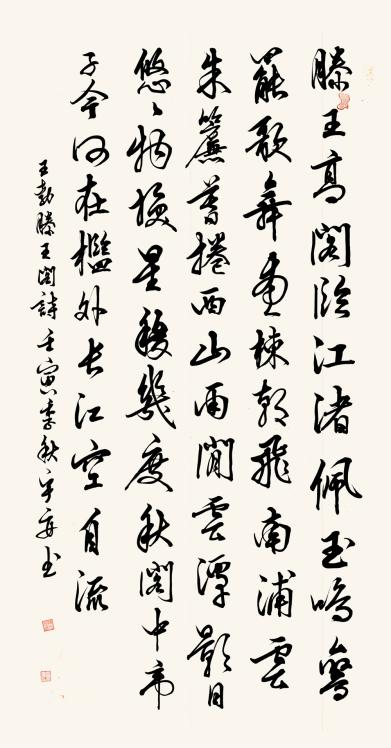 滕王高閣臨江渚佩玉鳴鸞
罷歌舞畫棟朝飛南浦雲
朱簾暮捲西山雨閒雲潭影日
悠〻物換星移幾度秋閣中帝
子今何在檻外長江空自流
王勃滕王閣詩壬寅季秋书